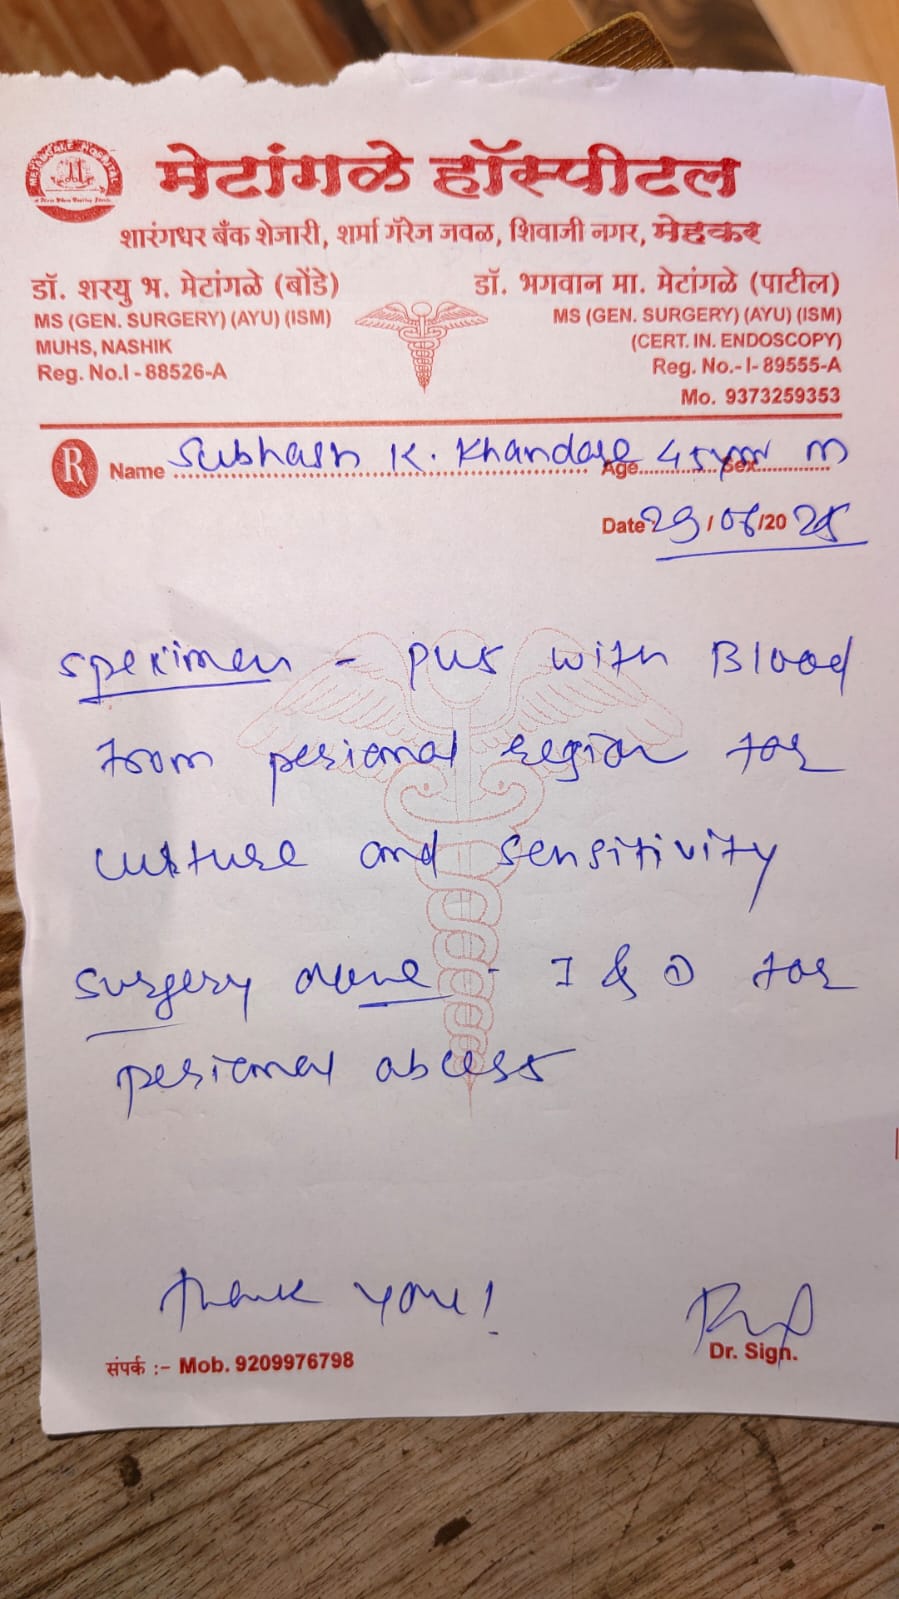 METANGALE HOSPITAL
मेटांगळे हॉस्पीटल
शारंगधर बँक शेजारी, शर्मा गॅरेज जवळ, शिवाजी नगर, मेहकर
डॉ. शरयु भ. मेटांगळे (बोंडे)
MS (GEN. SURGERY) (AYU) (ISM)
MUHS, NASHIK
Reg. No.I - 88526-A
डॉ. भगवान मा. मेटांगळे (पाटील)
MS (GEN. SURGERY) (AYU) (ISM)
(CERT. IN. ENDOSCOPY)
Reg. No.- I- 89555-A
Mo. 9373259353
R Name Subhash K. Khandare Age 45 yrs Sex m
Date 29/06/2025
Specimen - pus with Blood
from perianal region for
culture and sensitivity
surgery done - I & D for
perianal abcess
Thank you!
Dr. Sign.
संपर्क :- Mob. 9209976798